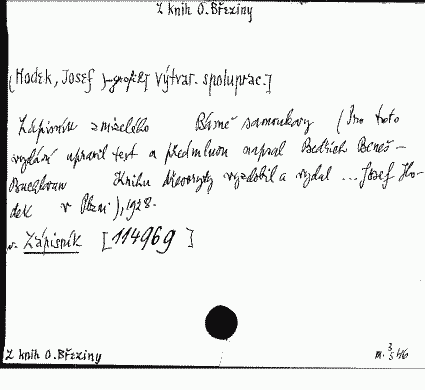 Z knih O. Březiny
(Hodek, Josef) - grafik [výtvar. spoluprac.]
Zápisník zmizelého Básně samoukovy (Pro toto
vydání upravil text a předmluvou napsal Bedřich Beneš-
Buchlovan Knihu dřevoryty vyzdobil a vydal ... Josef Ho-
dek v Plzni), 1928.
v. Zápisník [114969]
Z knih O. Březiny